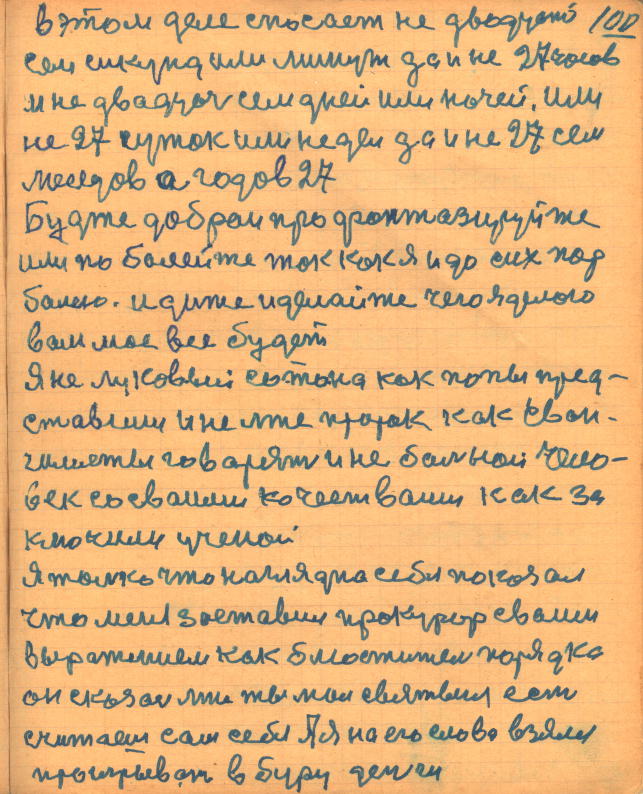 в этом деле спосает не двадцеть 100
сем сикунд или минут за и не 27 часов
и не двадцоть семдней или ночей, или
не 27 суток или недел за и не 27 сем
меседов а годов 27
Будте добраи профонтазируйте
или по болейте ток как я и до сих пор
болею. и диже и делайте чего я делого
вам мое все будет
Я не луковый сотона как попы пред-
ставили и не лже прорак как еван-
гилисты говарят и не болной чело-
век со своими кочествами как за
ключили ученой
Я толко что нагляднасебя покозал
что меня зоставил прокурор своим
выражением как блюстител порядка
он сказал мне ты мол святыил есм
считаеш сам себя А я на его слово взял и
проигрывать в буру денги